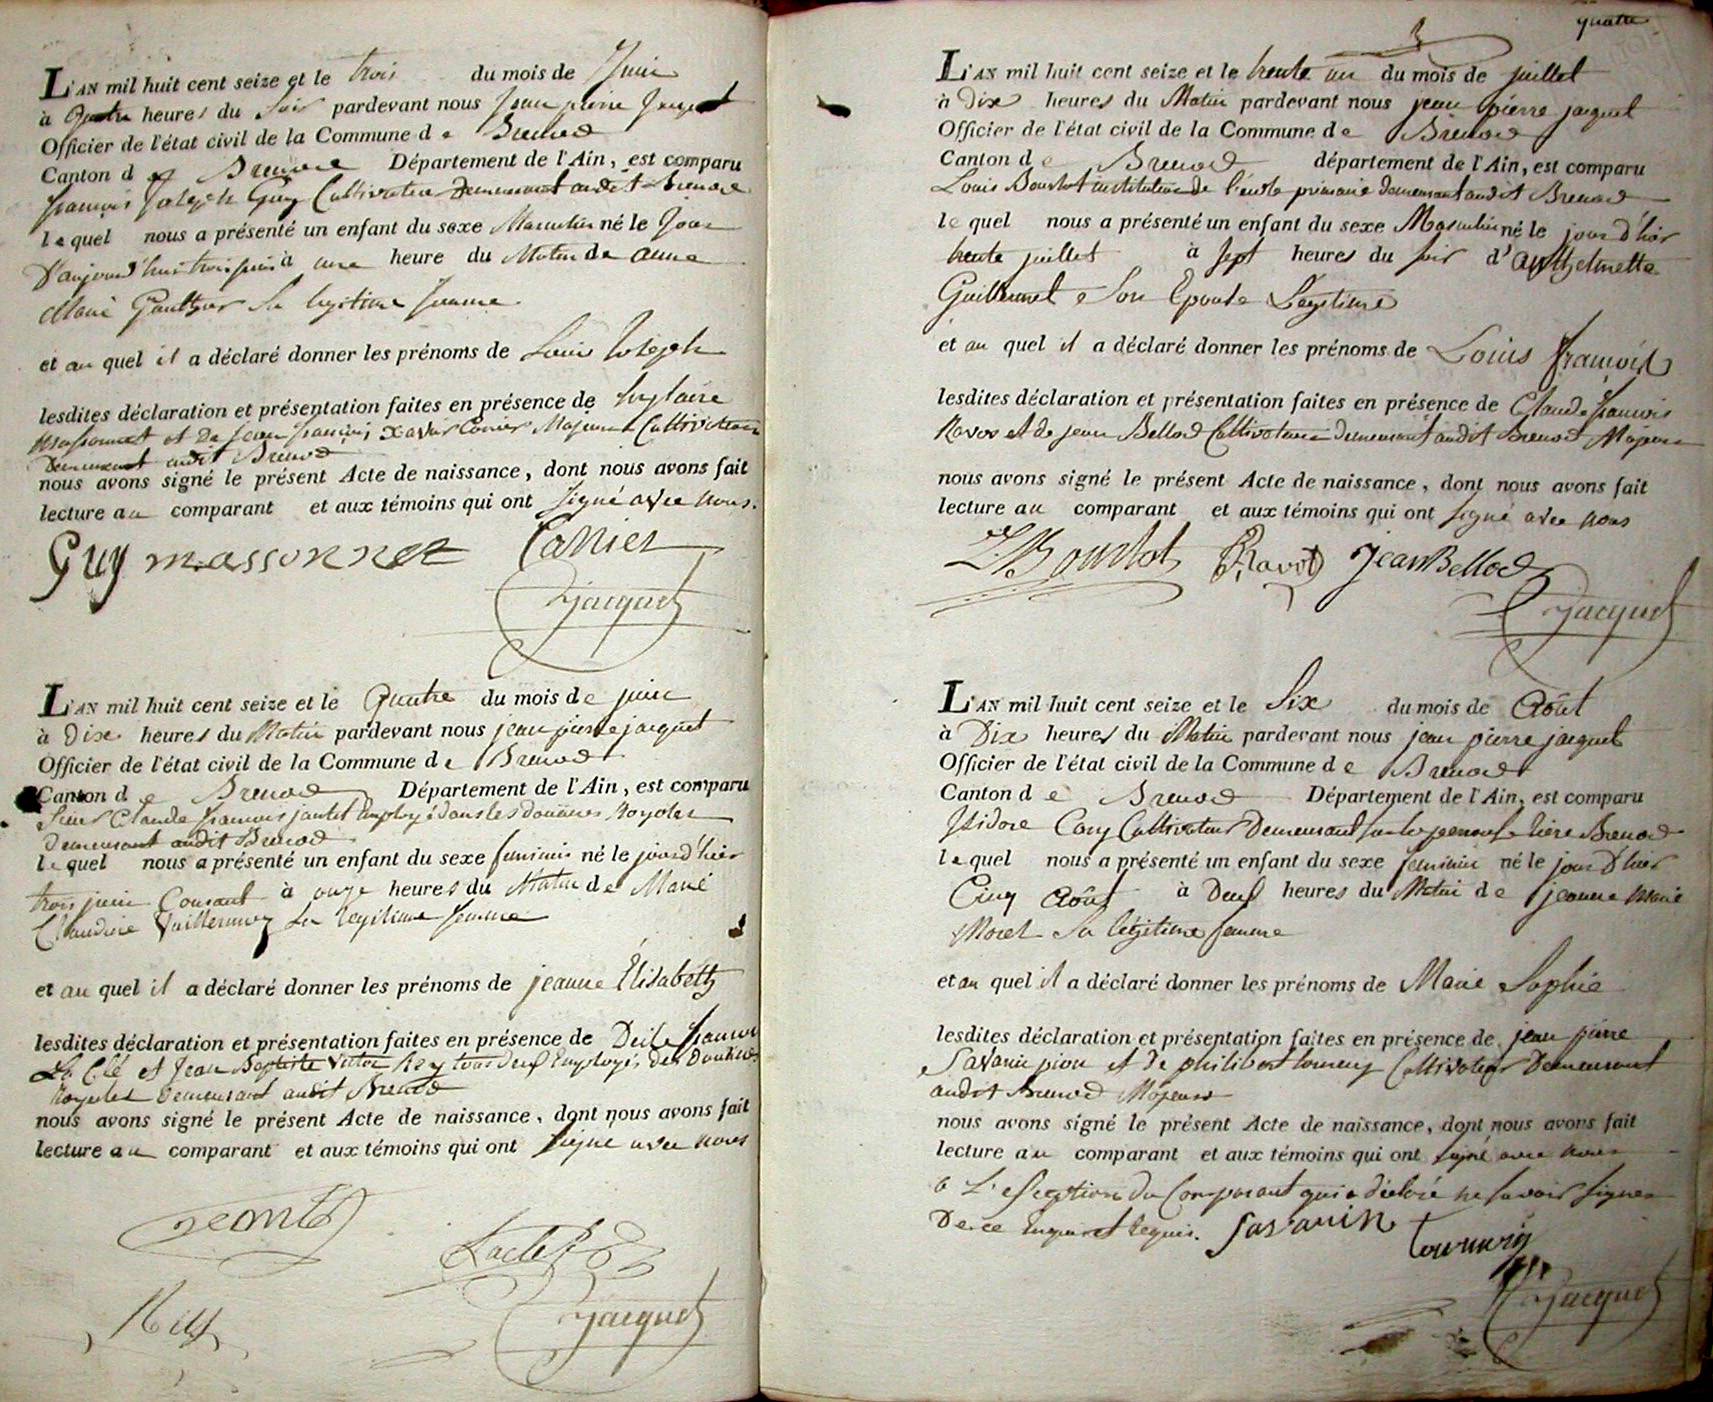 L'AN mil huit cent seize et le trois du mois de Juin
à quatre heures du Soir pardevant nous Jean pierre Jacquet
Officier de l'état civil de la Commune de Brenod
Canton de Brenod Département de l'Ain, est comparu
françois Joseph Guy Cultivateur Demeurant audit Brenod
lequel nous a présenté un enfant du sexe Masculin né le Jour
D'aujourd'hui trois juin à une heure du Matin de anne
Marie Sa legitime femme
et au quel il a déclaré donner les prénoms de Louis Joseph
lesdites déclaration et présentation faites en présence de hylaire
Massonnet et de Jean françois Xavier Majeurs Cultivateurs
Demeurant audit Brenod
nous avons signé le présent Acte de naissance, dont nous avons fait
lecture au comparant et aux témoins qui ont signé avec nous.
Guy massonnet
Jacquet
L'AN mil huit cent seize et le Quatre du mois de juin
à Dix heures du Matin pardevant nous jean pierre jacquet
Officier de l'état civil de la Commune de Brenod
Canton de Brenod Département de l'Ain, est comparu
Sieur Claude françois Employé dans les douanes Royales
Demeurant audit Brenod
lequel nous a présenté un enfant du sexe feminin né le jour d'hier
trois juin Courant à onze heures du Matin de Marie
Claudine Vuillermoz Sa legitime femme
et au quel il a déclaré donner les prénoms de jeanne Elisabeth
lesdites déclaration et présentation faites en présence de
La Clé et Jean Baptiste Victor Rey tous deux Employés des Douanes
Royales Demeurant audit Brenod
nous avons signé le présent Acte de naissance, dont nous avons fait
lecture au comparant et aux témoins qui ont signé avec nous
Lacle
Rey
Jacquet
quatre
L'AN mil huit cent seize et le trente un du mois de juillet
à Dix heures du Matin pardevant nous jean pierre jacquet
Officier de l'état civil de la Commune de Brenod
Canton de Brenod département de l'Ain, est comparu
Louis Bourlot instituteur de l'école primaire demeurant audit Brenod
lequel nous a présenté un enfant du sexe Masculin né le jour d'hier
trente juillet à Sept heures du soir d'anthelmette
Son Epouse Légitime
et au quel il a déclaré donner les prénoms de Louis françois
lesdites déclaration et présentation faites en présence de Claude françois
Ravot et de jean Bellod Cultivateurs Demeurant audit Brenod Majeurs
nous avons signé le présent Acte de naissance, dont nous avons fait
lecture au comparant et aux témoins qui ont signé avec nous
L. Bourlot Ravot Jean Bellod
Jacquet
L'AN mil huit cent seize et le Six du mois de Août
à Dix heures du Matin pardevant nous jean pierre jacquet
Officier de l'état civil de la Commune de Brenod
Canton de Brenod Département de l'Ain, est comparu
Isidore Cultivateur Demeurant Brenod
lequel nous a présenté un enfant du sexe feminin né le jour D'hier
Cinq Août à Deux heures du Matin de jeanne Marie
Morel Sa légitime femme
et au quel il a déclaré donner les prénoms de Marie Sophie
lesdites déclaration et présentation faites en présence de jean pierre
Savarin pion et de philibert Cultivateurs Demeurant
audit Brenod Majeurs
nous avons signé le présent Acte de naissance, dont nous avons fait
lecture au comparant et aux témoins qui ont signé avec nous
à L'exception du Comparant qui a déclaré ne savoir signer
De ce Enquis et Requis. Savarin
Jacquet